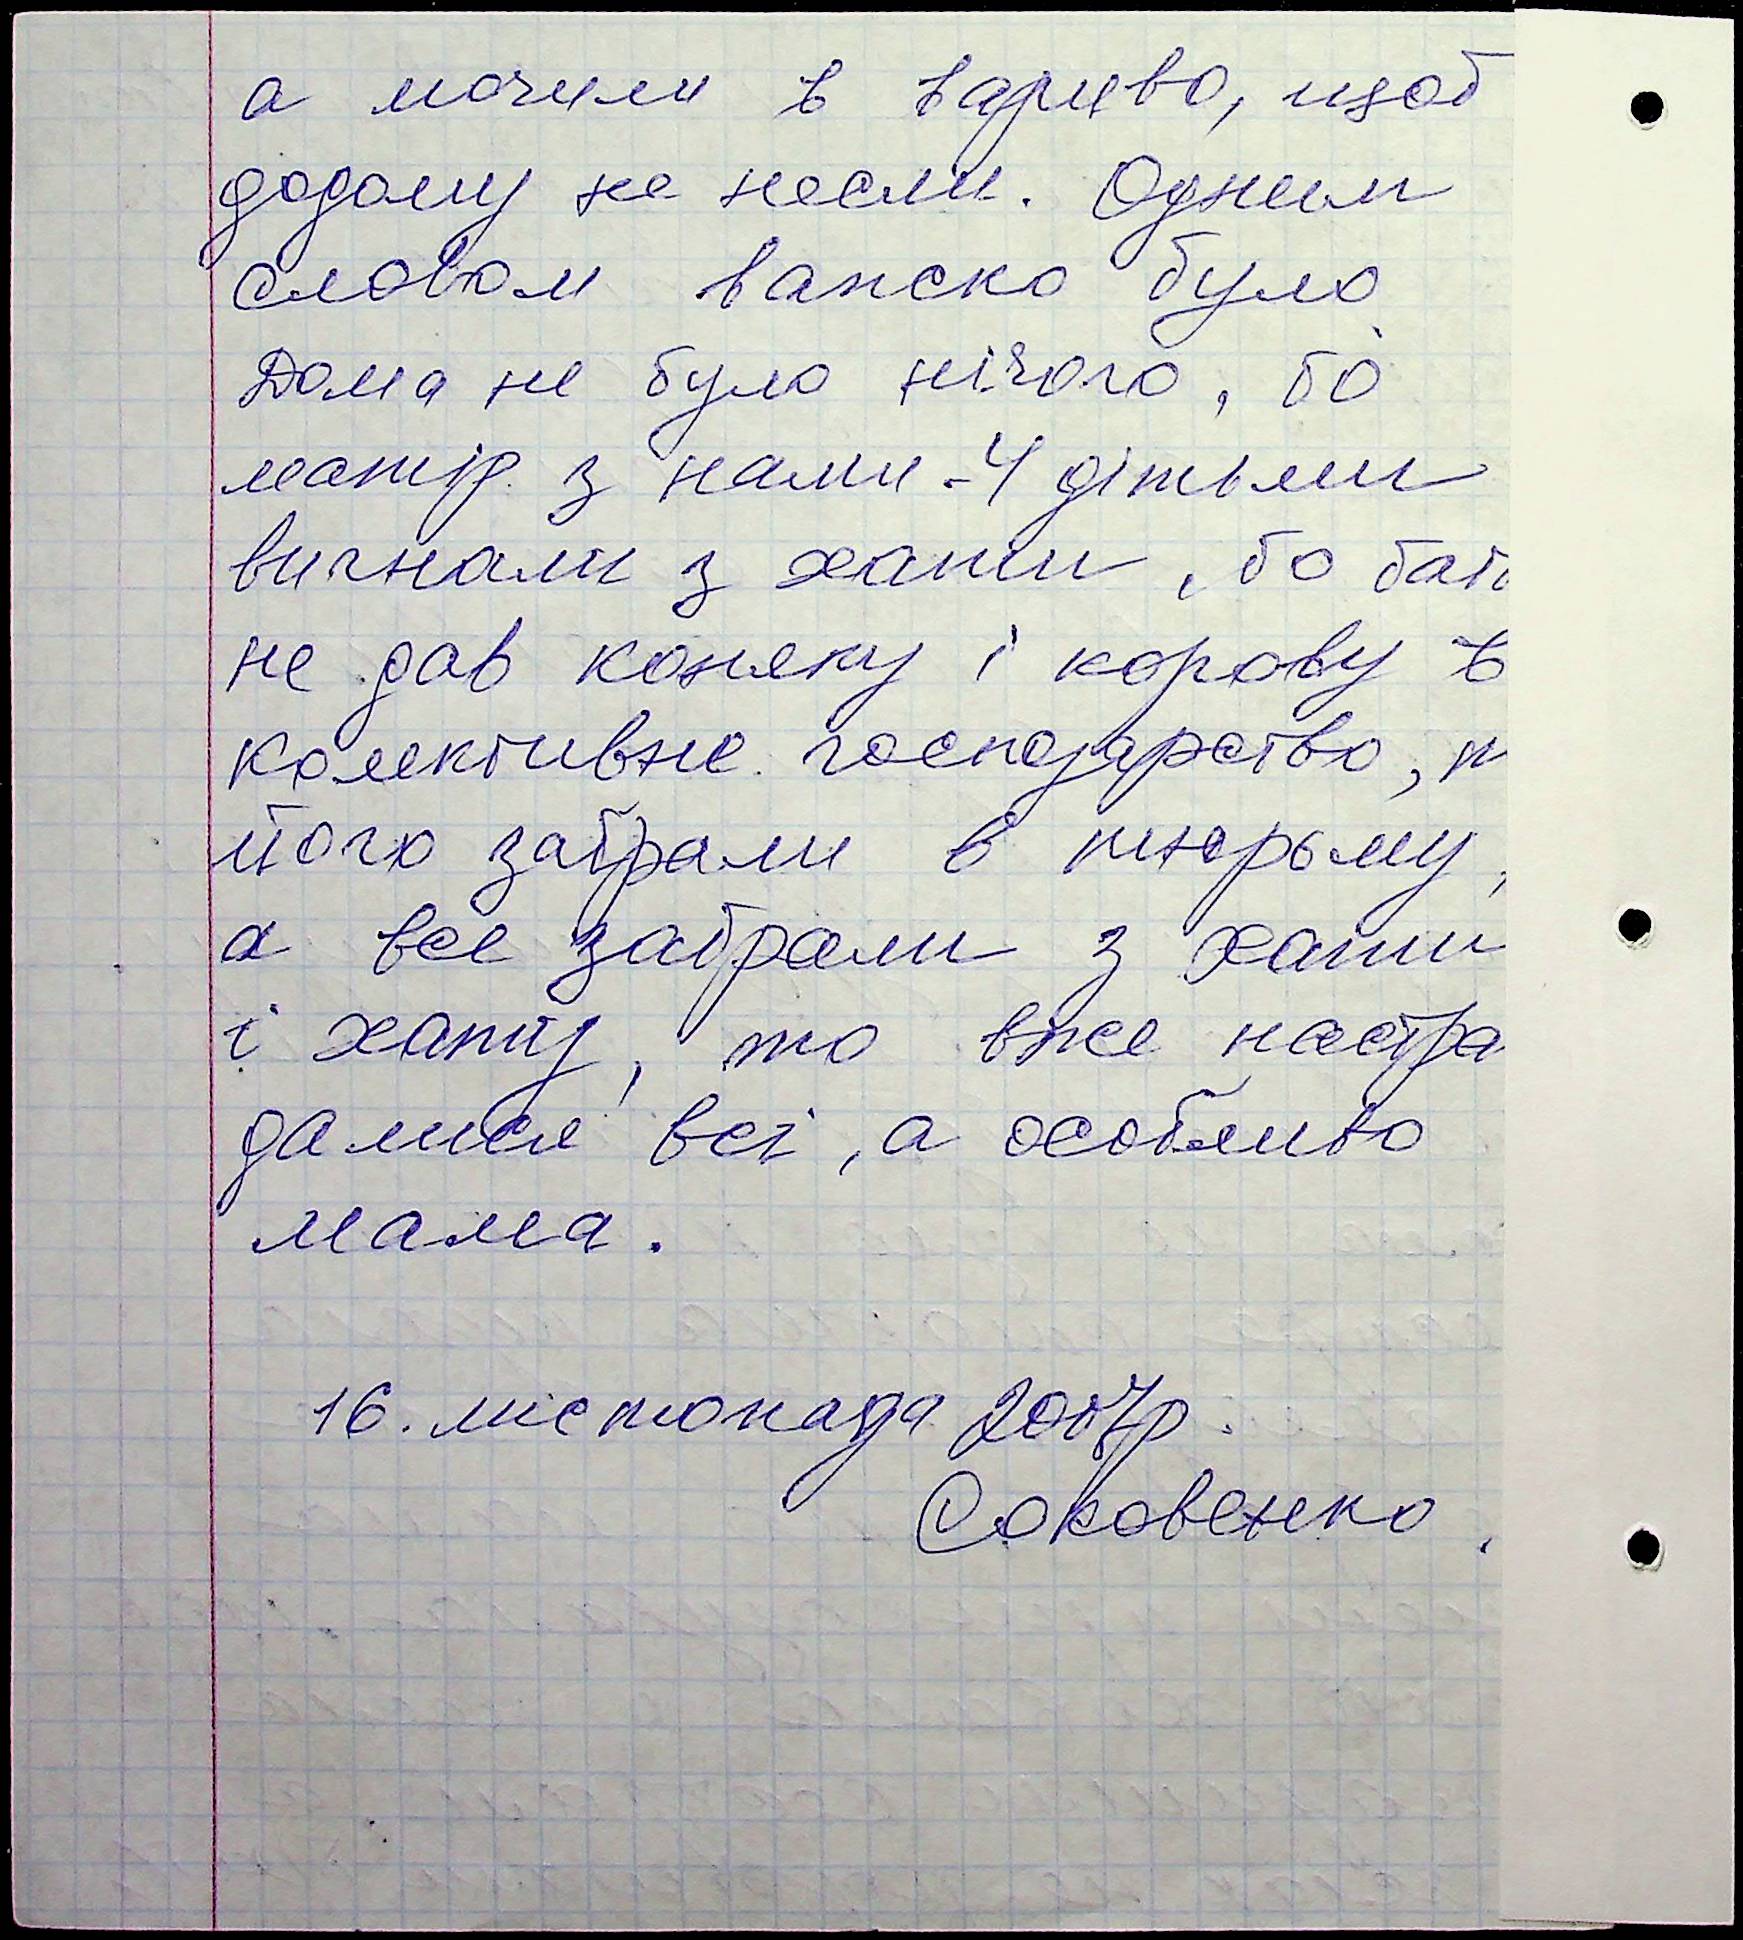 а мочили в вариво, щоб
додому не несли. Одним
словом ванско було
Дома не було нічого, бо
матір з нами - 4 дітьми
вигнали з хати, бо бать
не дав коняку і корову в
колективне господарство, т
його забрали в тюрьму,
а все забрали з хати
і хату, то вже настра
далися всі, а особливо
мама.
16. листопада 2007р.
Соковенко.